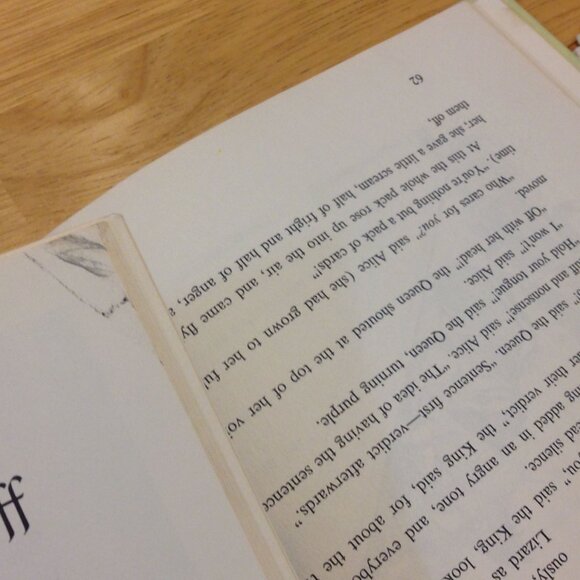 ously
Lizard as
you," said the King, look
ead silence.
ing added in an angry tone, and everybo
r their verdict," the King said, for about the t
said the Queen. "Sentence first—verdict afterwards."
uff and nonsense!" said Alice. "The idea of having the sentence
"Hold your tongue!" said the Queen, turning purple.
"I won't!" said Alice.
"Off with her head!" the Queen shouted at the top of her voi
moved.
"Who cares for you?" said Alice (she had grown to her ful
time). "You're nothing but a pack of cards!"
At this the whole pack rose up into the air, and came fly
her; she gave a little scream, half of fright and half of anger, a
them off.
62
ff